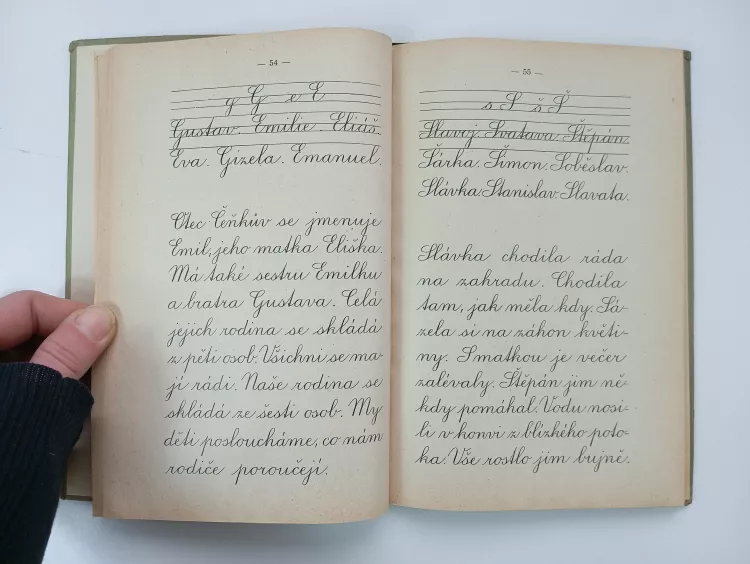 — 54 —
g G e E
Gustav. Emilie. Eliáš.
Eva. Gizela. Emanuel.
Otec Čeňkův se jmenuje
Emil, jeho matka Eliška.
Má také sestru Emilku
a bratra Gustava. Celá
jejich rodina se skládá
z pěti osob. Všichni se ma-
jí rádi. Naše rodina se
skládá ze šesti osob. My
děti posloucháme, co nám
rodiče poroučejí.
— 55 —
s S š Š
Slavoj. Svatava. Štěpán.
Šárka. Šimon. Soběslav.
Slávka. Stanislav. Slavata.
Slávka chodila ráda
na zahradu. Chodila
tam, jak měla kdy. Sá-
zela si na záhon květi-
ny. S matkou je večer
zalévaly. Štěpán jim ně-
kdy pomáhal. Vodu nosi-
li v konvi z blízkého poto-
ka. Vše rostlo jim bujně.